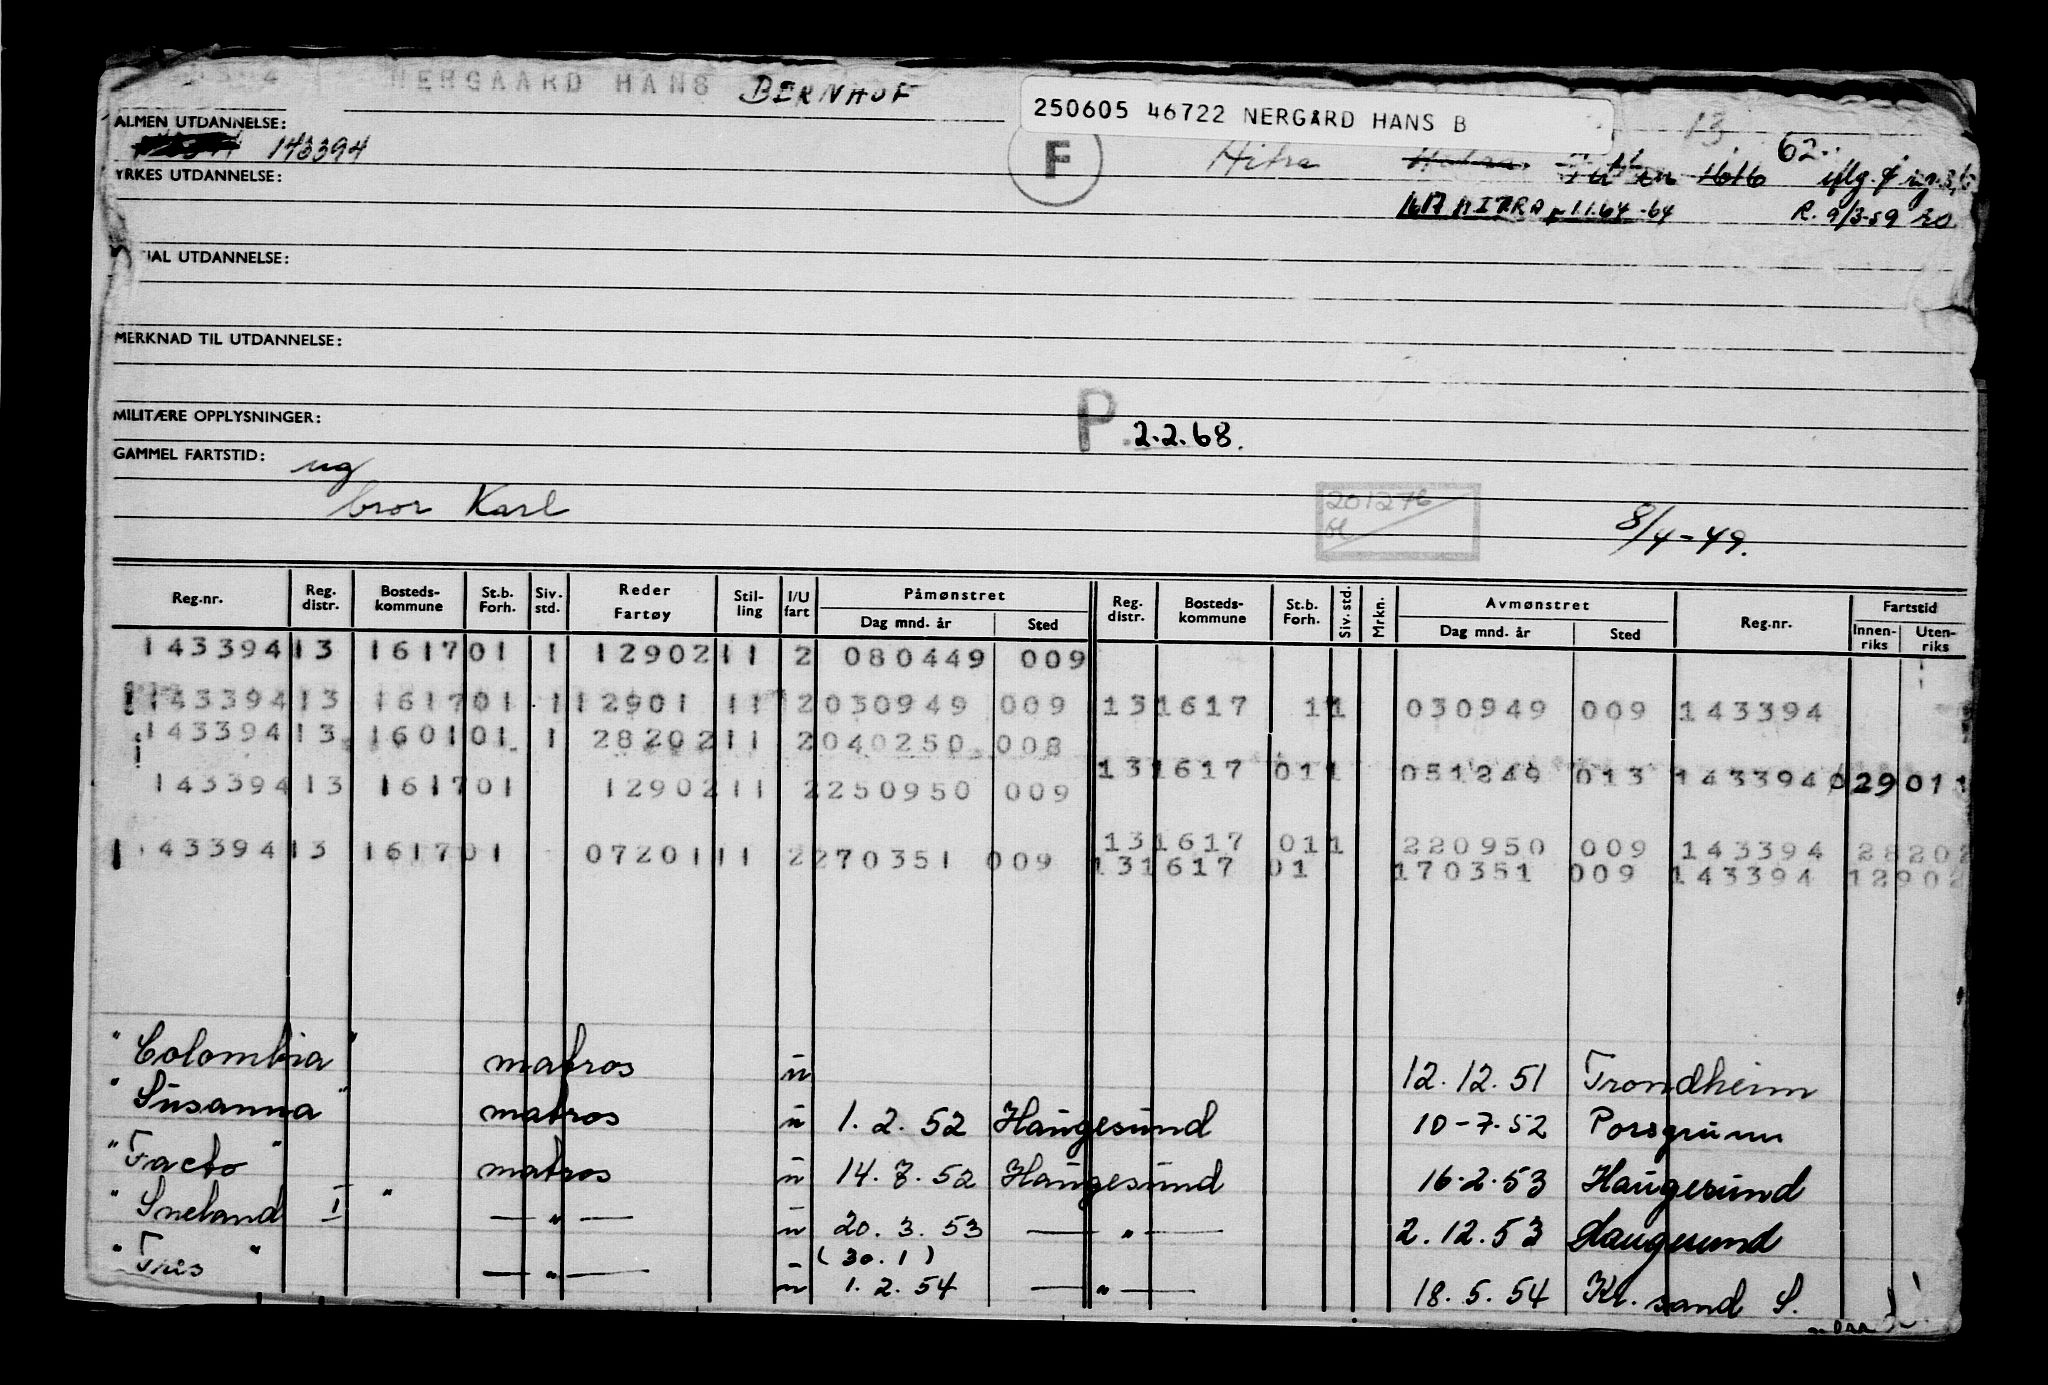 NERGAARD HANS BERNHOF
250605 46722 NERGÅRD HANS B
13
62
ALMEN UTDANNELSE:
143394
F
Hitra
1616
R. 9/3-59
YRKES UTDANNELSE:
1617 HITRA 1.1.64 -64
IAL UTDANNELSE:
MERKNAD TIL UTDANNELSE:
MILITÆRE OPPLYSNINGER:
P. 2.2.68.
GAMMEL FARTSTID: ug
bror Karl
201276
8/4-49.
Reg.nr. Reg. distr. Bosteds-kommune St.b. Forh. Siv. std. Reder Fartøy Stil-ling I/U fart Påmønstret Dag mnd. år Sted Reg. distr. Bosteds-kommune St.b. Forh. Siv. std. Mrkn. Avmønstret Dag mnd. år Sted Reg.nr. Fartstid Innen-riks Uten-riks
143394 13 1617 01 1 12902 11 2 080449 009
143394 13 1617 01 1 12901 11 2 030949 009 13 1617 1 1 030949 009 143394
143394 13 1601 01 1 28202 11 2 040250 008
13 1617 01 1 051249 013 143394 02901
143394 13 1617 01 12902 11 2 250950 009
13 1617 01 1 220950 009 143394 28202
43394 13 1617 01 07201 11 2 270351 009 13 1617 01 170351 009 143394 12902
"Colombia" matros u 12.12.51 Trondheim
"Susanna" matros u 1.2.52 Haugesund 10-7.52 Porsgrunn
"Facto" matros u 14.7.52 Haugesund 16.2.53 Haugesund
"Sneland I" — " — u 20.3.53 — " — 2.12.53 Haugesund
(30.1)
"Tris" — " — u 1.2.54 — " — 18.5.54 Kr. sand S.